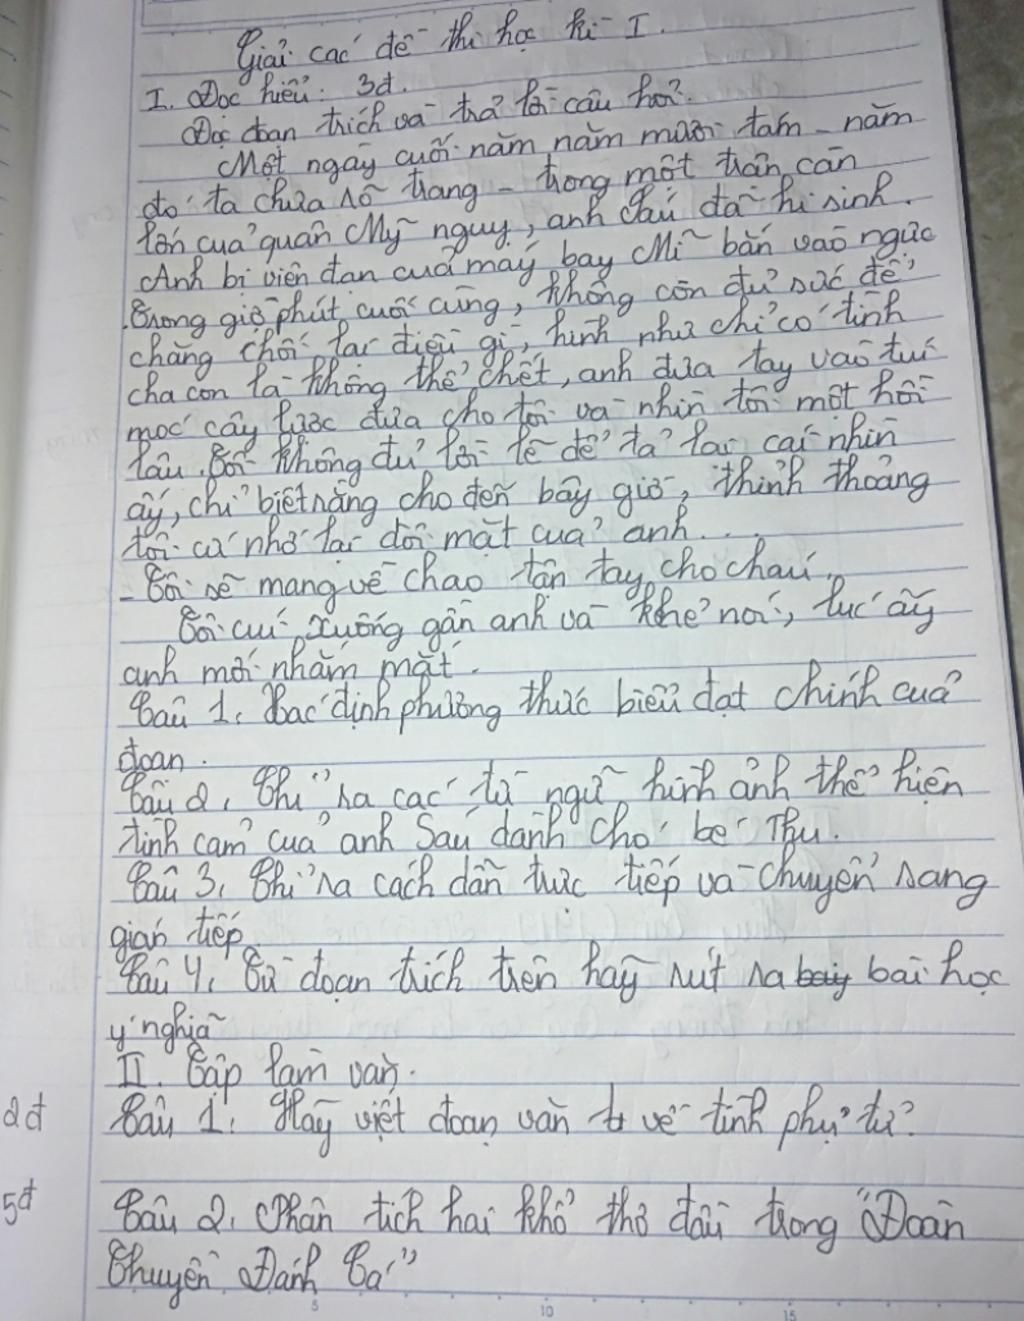 Giải các đề thi học kì I.
I. Đọc hiểu: 3đ.
Đọc đoạn trích và trả lời câu hỏi.
Một ngày cuối năm năm mươi tám - năm
đó ta chưa nổ trang - trong một trận càn
lớn của quân Mỹ ngụy, anh Sáu đã hi sinh.
Anh bị viên đạn của máy bay Mĩ bắn vào ngực
Trong giờ phút cuối cùng, không còn đủ sức để
chăng chối lại điều gì, hình như chỉ có tình
cha con là không thể chết, anh đưa tay vào túi
móc cây lược đưa cho tôi và nhìn tôi một hồi
lâu. Tôi không đủ lời lẽ để tả lại cái nhìn
ấy, chỉ biết rằng cho đến bây giờ, thỉnh thoảng
tôi cứ nhớ lại đôi mắt của anh...
- Tôi sẽ mang về chao tận tay cho cháu.
Tôi cúi xuống gần anh và khẽ nói, lúc ấy
anh mới nhắm mắt.
Câu 1. Xác định phương thức biểu đạt chính của
đoạn.
Câu 2. Chỉ ra các từ ngữ hình ảnh thể hiện
tình cảm của anh Sáu dành cho bé Thu.
Câu 3. Chỉ ra cách dẫn trực tiếp và chuyển sang
gián tiếp.
Câu 4. Từ đoạn trích trên hãy rút ra bài học
ý nghĩa
II. Tập làm văn.
2đ Câu 1. Hãy việt đoạn văn về tình phụ tử?
5đ Câu 2. Phân tích hai khổ thơ đầu trong "Đoàn
Thuyền Đánh Cá"
5 10 15